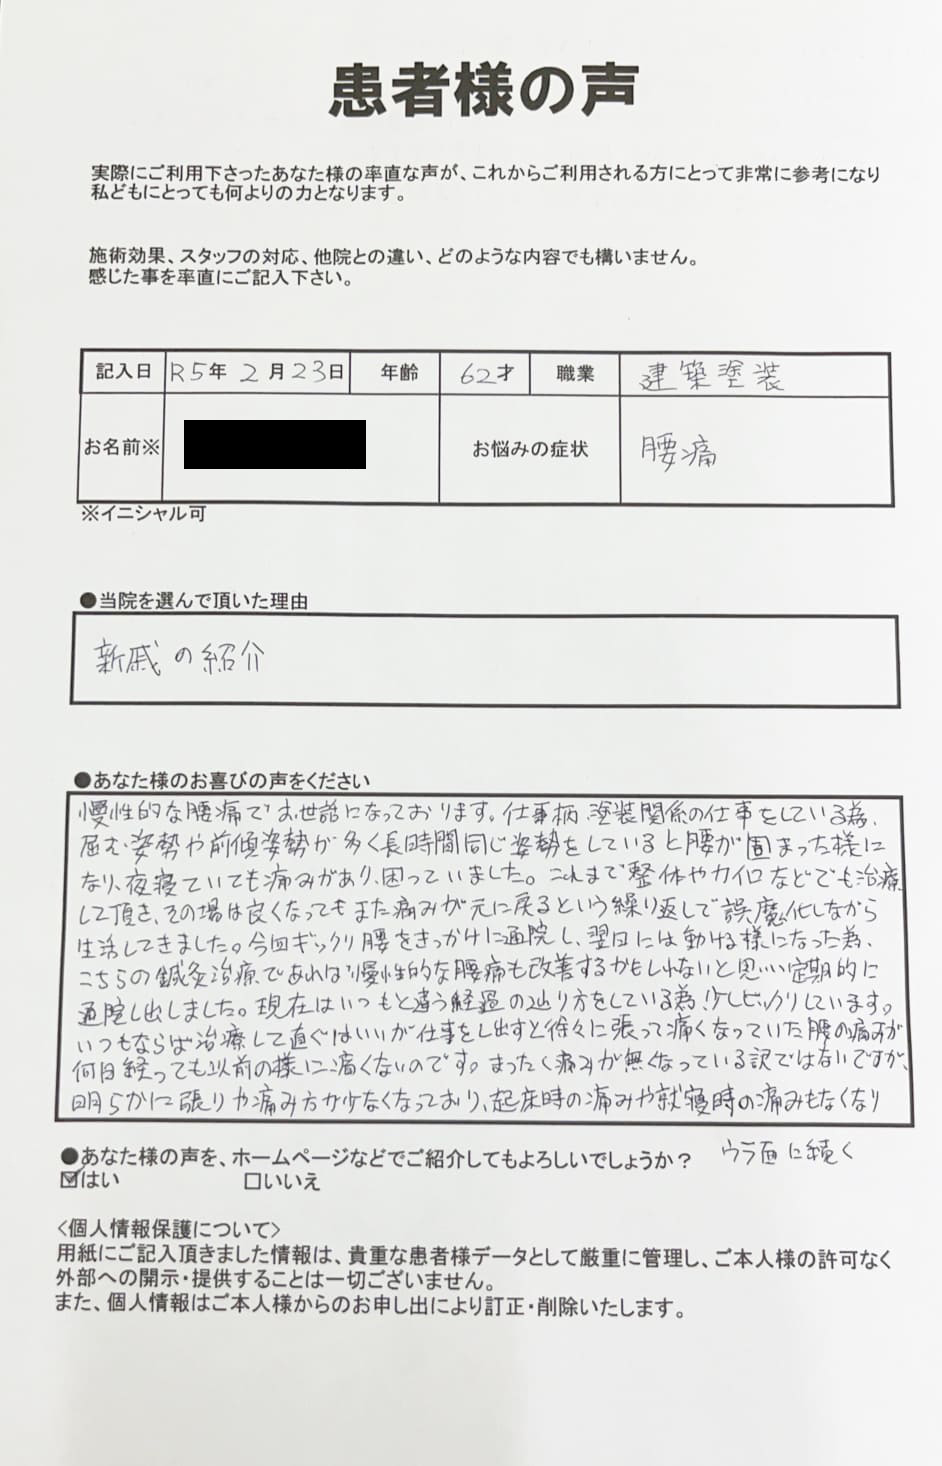 患者様の声
実際にご利用下さったあなた様の率直な声が、これからご利用される方にとって非常に参考になり
私どもにとっても何よりの力となります。
施術効果、スタッフの対応、他院との違い、どのような内容でも構いません。
感じた事を率直にご記入下さい。
記入日 R5年 2月23日 年齢 62才 職業 建築塗装
お名前※ お悩みの症状 腰痛
※イニシャル可
●当院を選んで頂いた理由
親戚の紹介
●あなた様のお喜びの声をください
慢性的な腰痛でお世話になっております。仕事柄、塗装関係の仕事をしている為、
屈む姿勢や前傾姿勢が多く長時間同じ姿勢をしていると腰が固まった様に
なり、夜寝ていても痛みがあり、困っていました。これまで整体やカイロなどでも治療
して頂き、その場は良くなってもまた痛みが元に戻るという繰り返しで誤魔化しながら
生活してきました。今回ギックリ腰をきっかけに通院し、翌日には動ける様になった為、
こちらの鍼灸治療であれば慢性的な腰痛も改善するかもしれないと思い定期的に
通院し出しました。現在はいつもと違う経過の辿り方をしている為少しビックリしています。
いつもならば治療して直ぐはいいが仕事をし出すと徐々に張って痛くなっていた腰の痛みが
何日経っても以前の様に痛くないのです。まったく痛みが無くなっている訳ではないですが、
明らかに張りや痛み方が少なくなっており、起床時の痛みや就寝時の痛みもなくなり
●あなた様の声を、ホームページなどでご紹介してもよろしいでしょうか？ ウラ面に続く
☑はい □いいえ
<個人情報保護について>
用紙にご記入頂きました情報は、貴重な患者様データとして厳重に管理し、ご本人様の許可なく
外部への開示・提供することは一切ございません。
また、個人情報はご本人様からのお申し出により訂正・削除いたします。